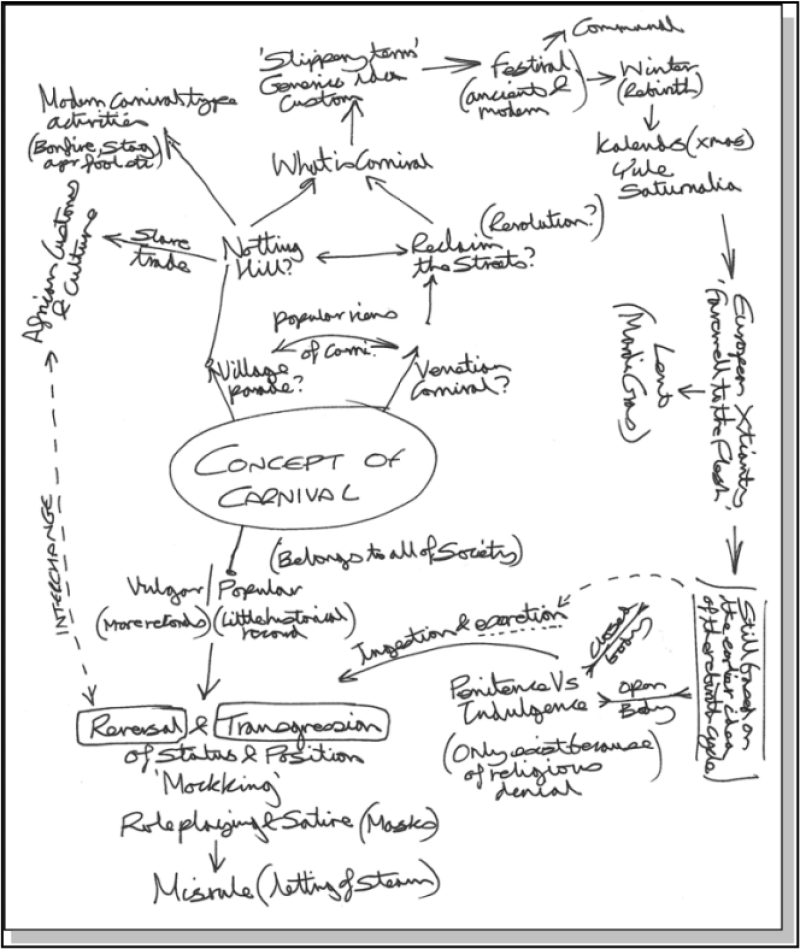 Communal
'Slippery term'
Generic idea
Custom
Festival
(ancient &
modern)
Winter
(Rebirth)
Modern Carnival type
activities
(Bonfire, Stag,
apr fool etc)
What is Carnival
Kalends (xmas)
Yule
Saturnalia
African Customs
& Culture
Slave
trade
Notting
Hill?
(Revolution?)
Reclaim
the Streets?
popular views
of Carni.
Village
parade?
Venetian
Carnival?
European Xtianity
'Farewell to the Flesh'
Lent
(Mardi Gras)
CONCEPT OF
CARNIVAL
INTERCHANGE
(Belongs to all of Society)
Vulgar
(More records)
Popular
(Little historical
record)
Ingestion & excretion
Closed
body
Still based on
the earlier idea
of the rebirth cycle
Penitence Vs
Indulgence
Open
Body
(Only exist because
of religious
denial)
Reversal & Transgression
of Status & Position
'Mock King'
Roleplaying & Satire (Masks)
Misrule (letting of Steam)